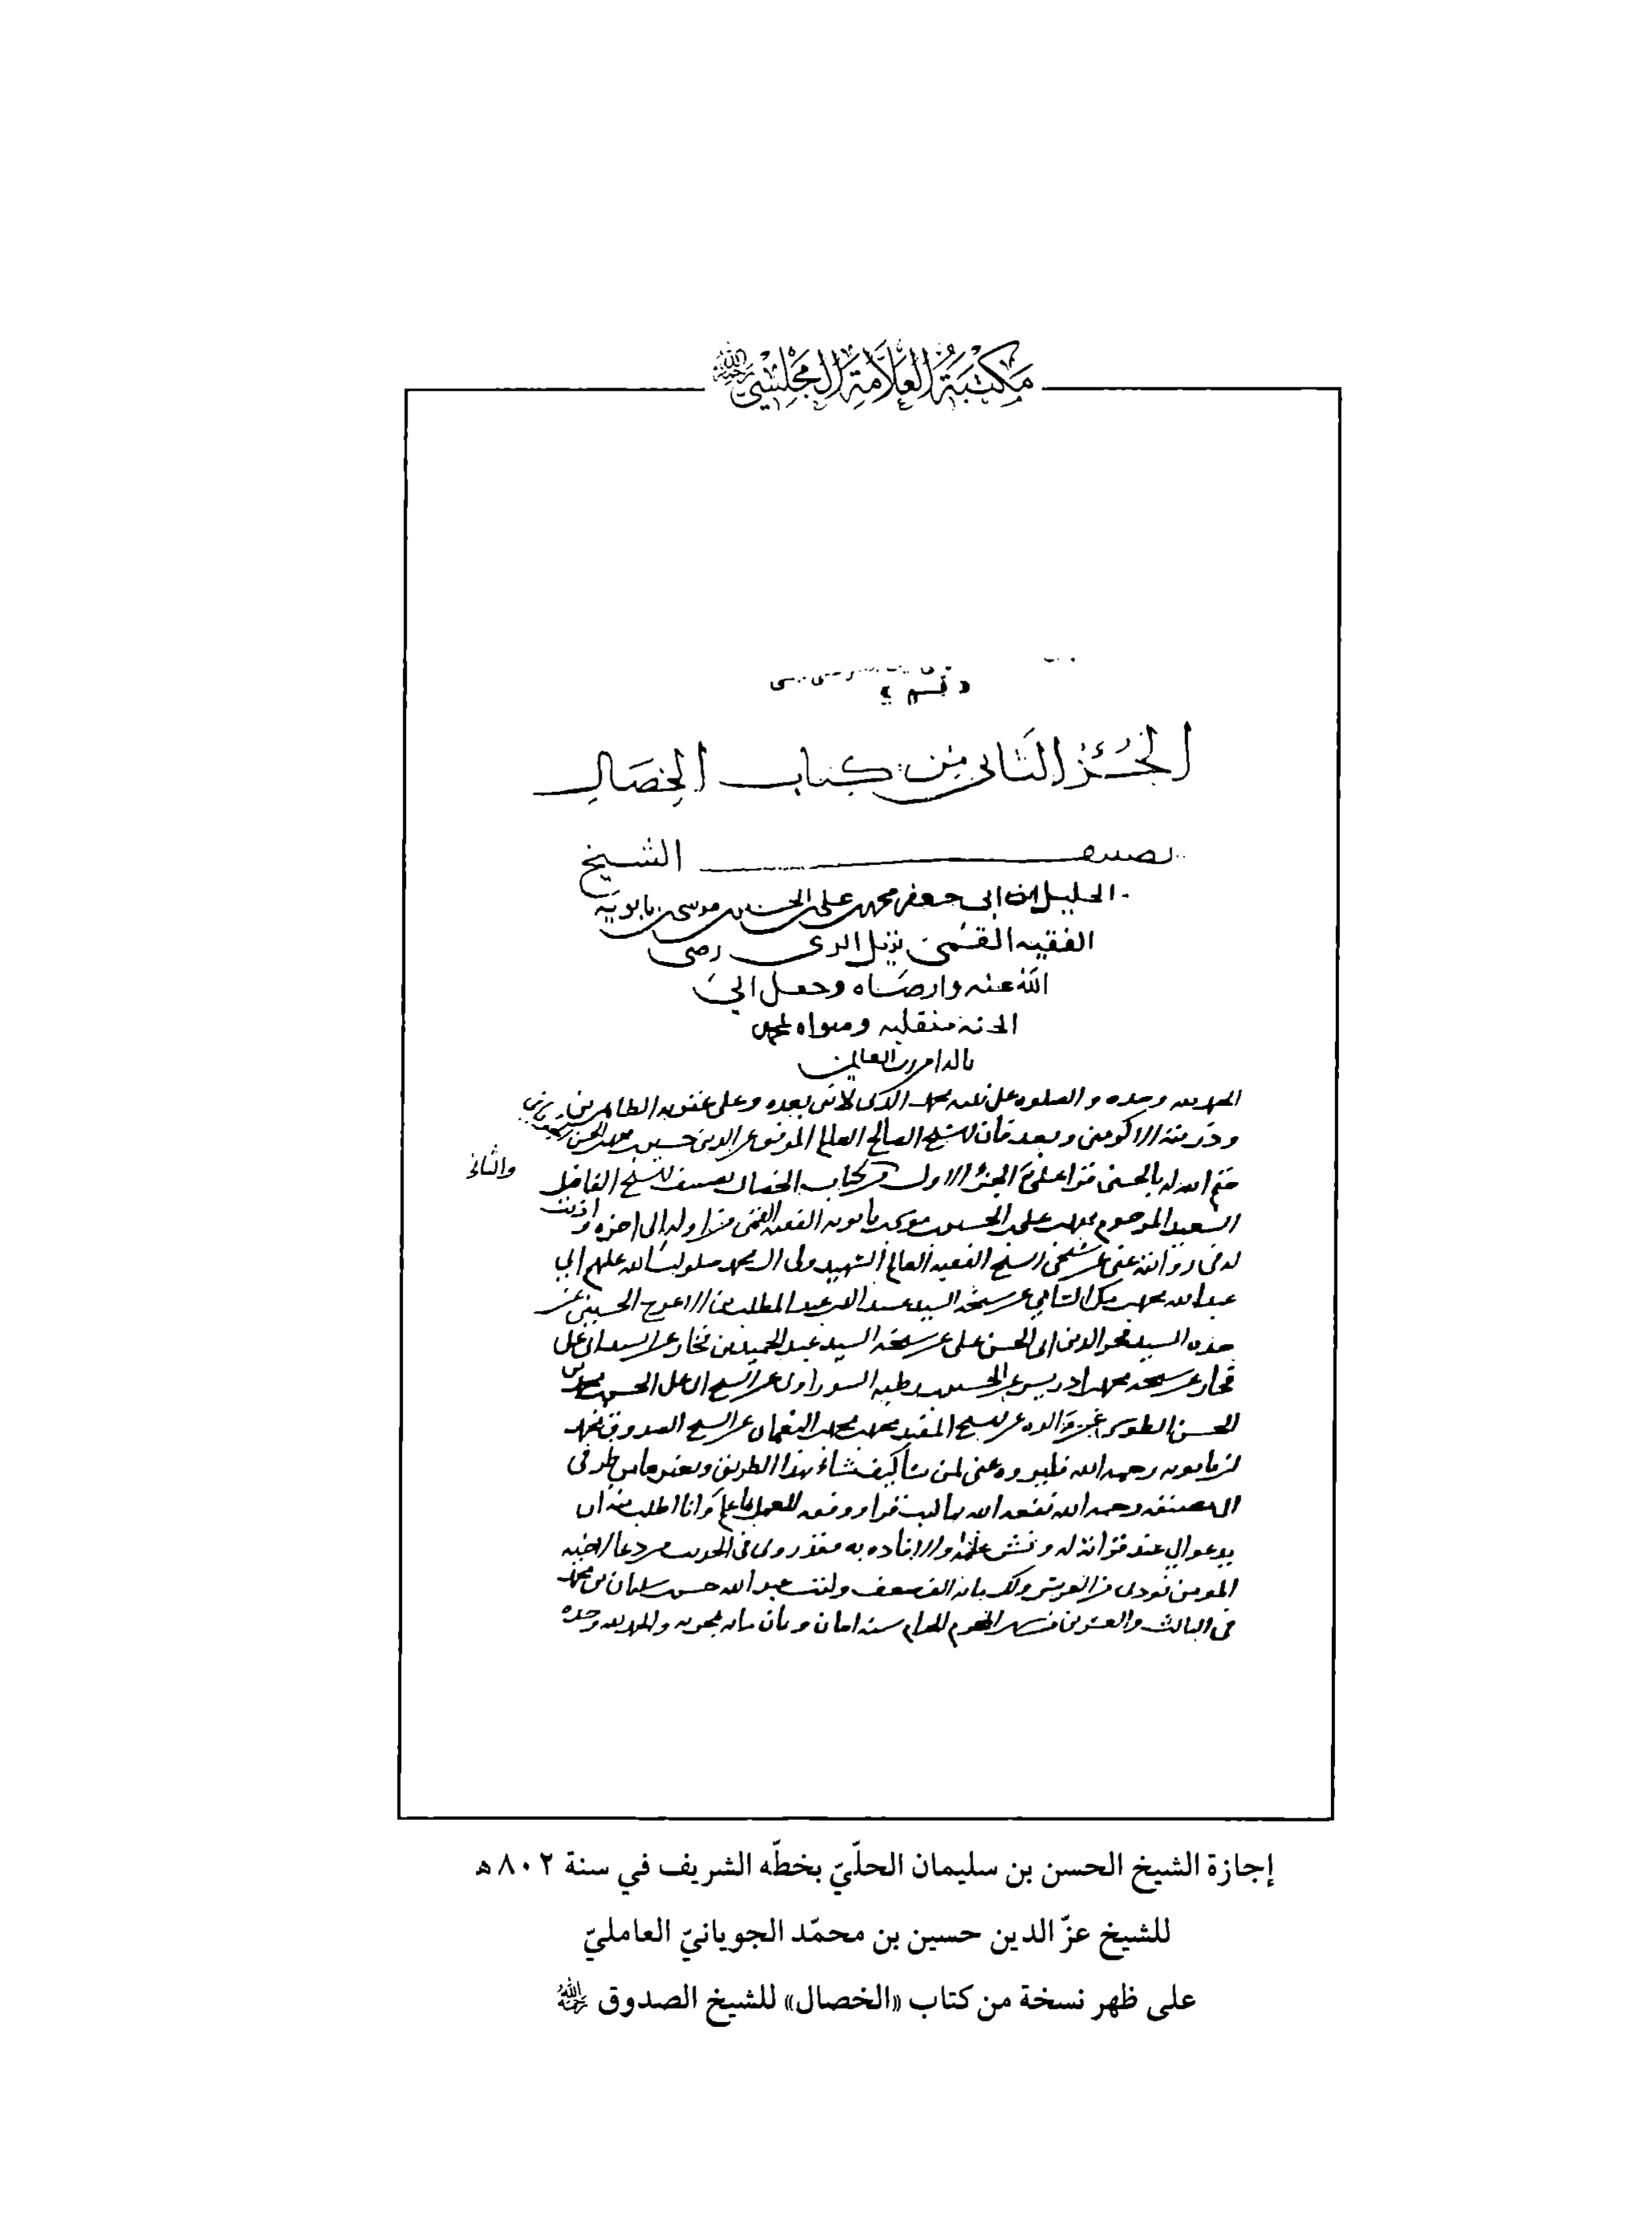 مكتبة العلامة المجلسي رحمه الله
«قم»
الجُزءُ الثاني مِن كتاب الخِصَالِ
تصنيف الشيخ
الجليل ابن ابى جعفر محمد بن على بن الحسين بن موسى بن بابويه
الفقيه القمى نزيل الرى رضى
الله عنه وارضاه وجعل الى
الجنة منقلبه ومثواه بمحمد
واله امين رب العالمين
الحمد لله وحده والصلوه على نبيه محمد الذى لا نبى بعده وعلى عترته الطاهرين
وذريته الاكرمين وبعد فان الشيخ الصالح العالم الموفق عز الدين حسين بن محمد
ختم الله له بالحسنى قرا علىّ الجزء الاول من كتاب الخصال تصنيف الشيخ الفاضل
والثانى
السعيد المرحوم محمد بن على بن الحسين بن موسى بن بابويه الفقيه القمى من اوله الى اخره واذنت
له فى روايته عنى عن شيخى الشيخ الفقيه العالم الشهيد ولى ال محمد صلوات الله عليهم ابى
عبد الله محمد بن مكى الشامى عن شيخه السيد عميد الدين عبد المطلب بن الاعرج الحسينى عن
جده السيد فخر الدين ابى الحسن على عن شيخه السيد عبد الحميد بن فخار عن السيد ابى على
فخار عن شيخه محمد بن ادريس عن الحسين بن رطبه السوراوى عن الشيخ ابى على الحسن بن محمد بن
الحسن الطوسى عن والده عن الشيخ المفيد محمد بن محمد بن النعمان عن الشيخ الصدوق محمد
بن بابويه رحمه الله فليروه عنى لمن شا كيف شاء بهذا الطريق وبغيرها من طرقى
الى مصنفه رحمه الله نفعه الله بما كتب وقرا ووفقه للعمل بما علم وانا اطلب منه ان
يدعو لى عند قرائته له
المومن نودى من العرش ولك مائة الف ضعف وكتب عبد الله حسن بن سليمان بن محمد
فى الثالث والعشرين من شهر المحرم الحرام سنه اثنان وثمان مائه هجريه والحمد لله وحده
إجازة الشيخ الحسن بن سليمان الحلّيّ بخطّه الشريف في سنة ٨٠٢ هـ
للشيخ عزّ الدين حسين بن محمّد الجويانيّ العامليّ
على ظهر نسخة من كتاب «الخصال» للشيخ الصدوق رحمه الله